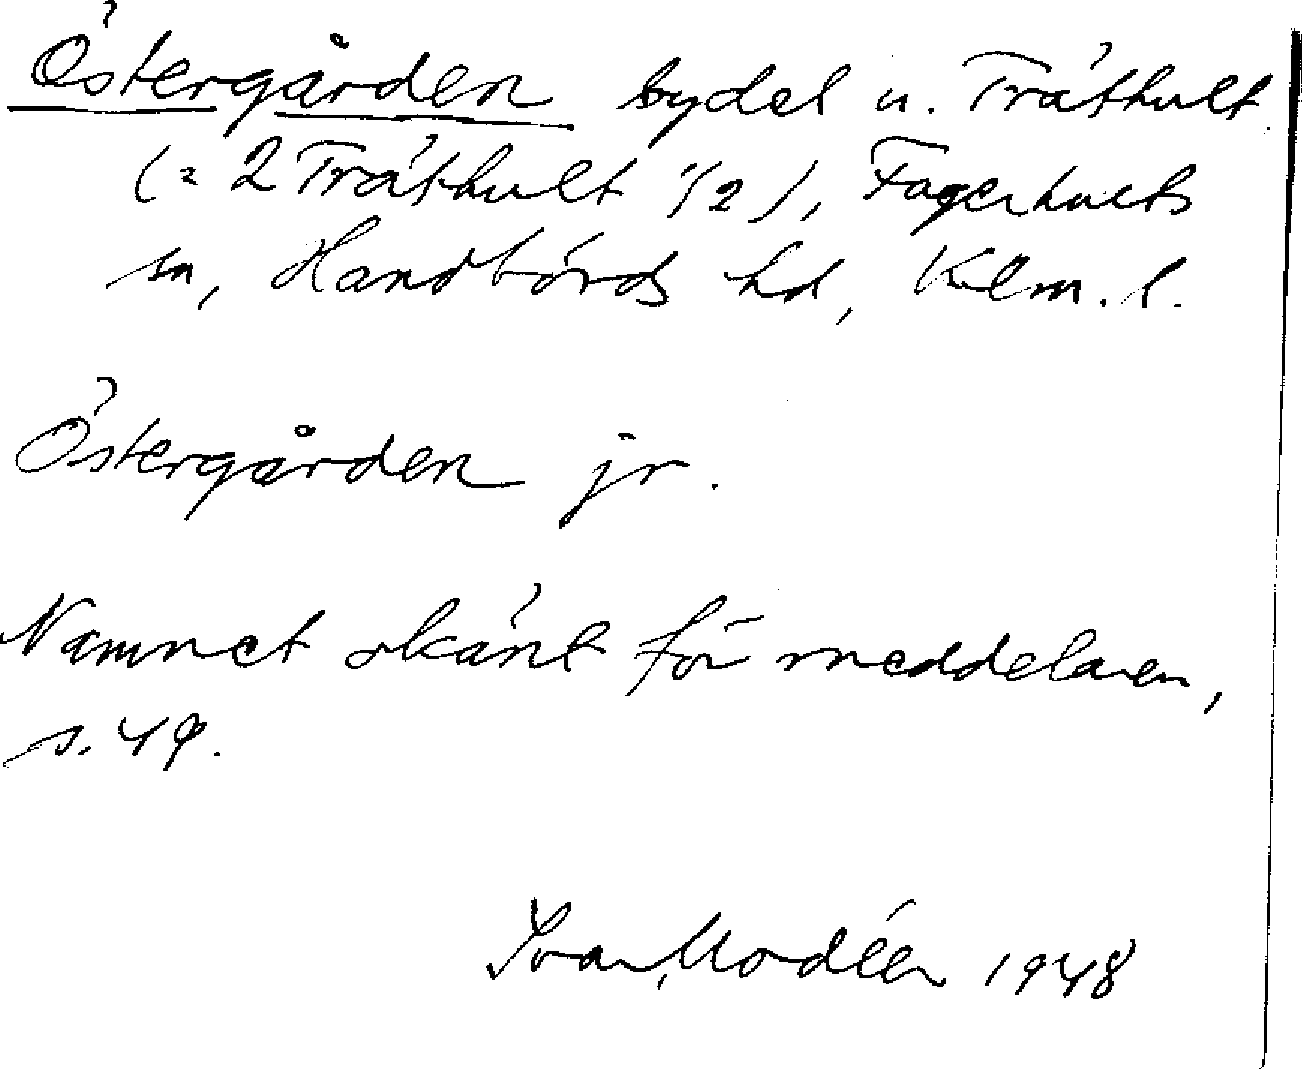 Östergården bydel u. Träthult
(= 2 Träthult 1/2), Fagerhults
sn, Handbörds hd, Klm. l.
Östergården jr.
Namnet okänt för meddelaren,
s. 49.
Ivar Modéer 1948